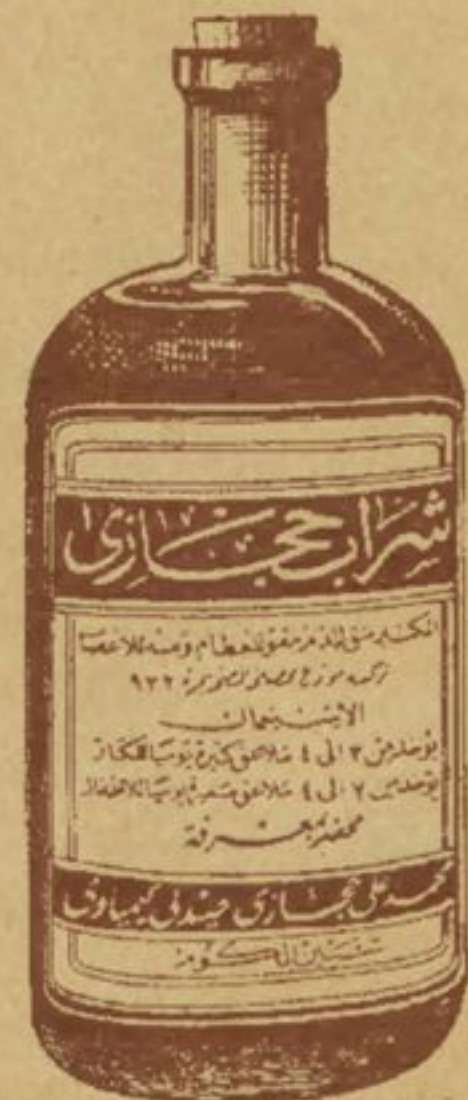 شراب حجازى
منق للدم مقو للعظام ومنبه للاعصاب
٩٣٢
الاستعمال
يؤخذ من ٣ الى ٤ ملاعق كبيرة يوميا للكبار
يؤخذ من ٢ الى ٤ ملاعق صغيرة يوميا للاطفال
محضر بمعرفة
محمد على حجازى صيدلى كيمياوى
شبين الكوم